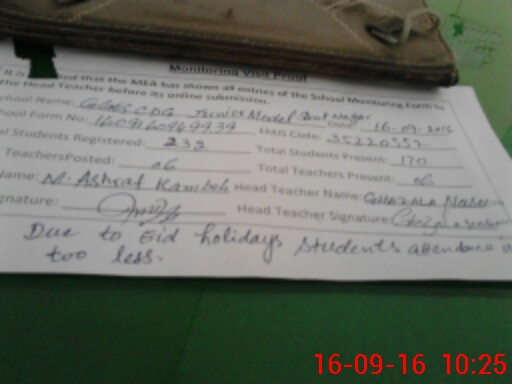 Monitoring Visit Proof
that the MEA has shown all entries of the School Monitoring Form to
the Head Teacher before its online submission.
School Name: CDG Junior Model
School Form No: Date: 16-09-2016
Students Registered: 232 EMIS Code: 35220352
Total Students Present: 170
Teachers Posted: 06 Total Teachers Present: 06
Name: M. Ashraf Head Teacher Name: Ghazala
Signature: Head Teacher Signature:
Due to Eid holidays students attendance
too less.
16-09-16 10:25